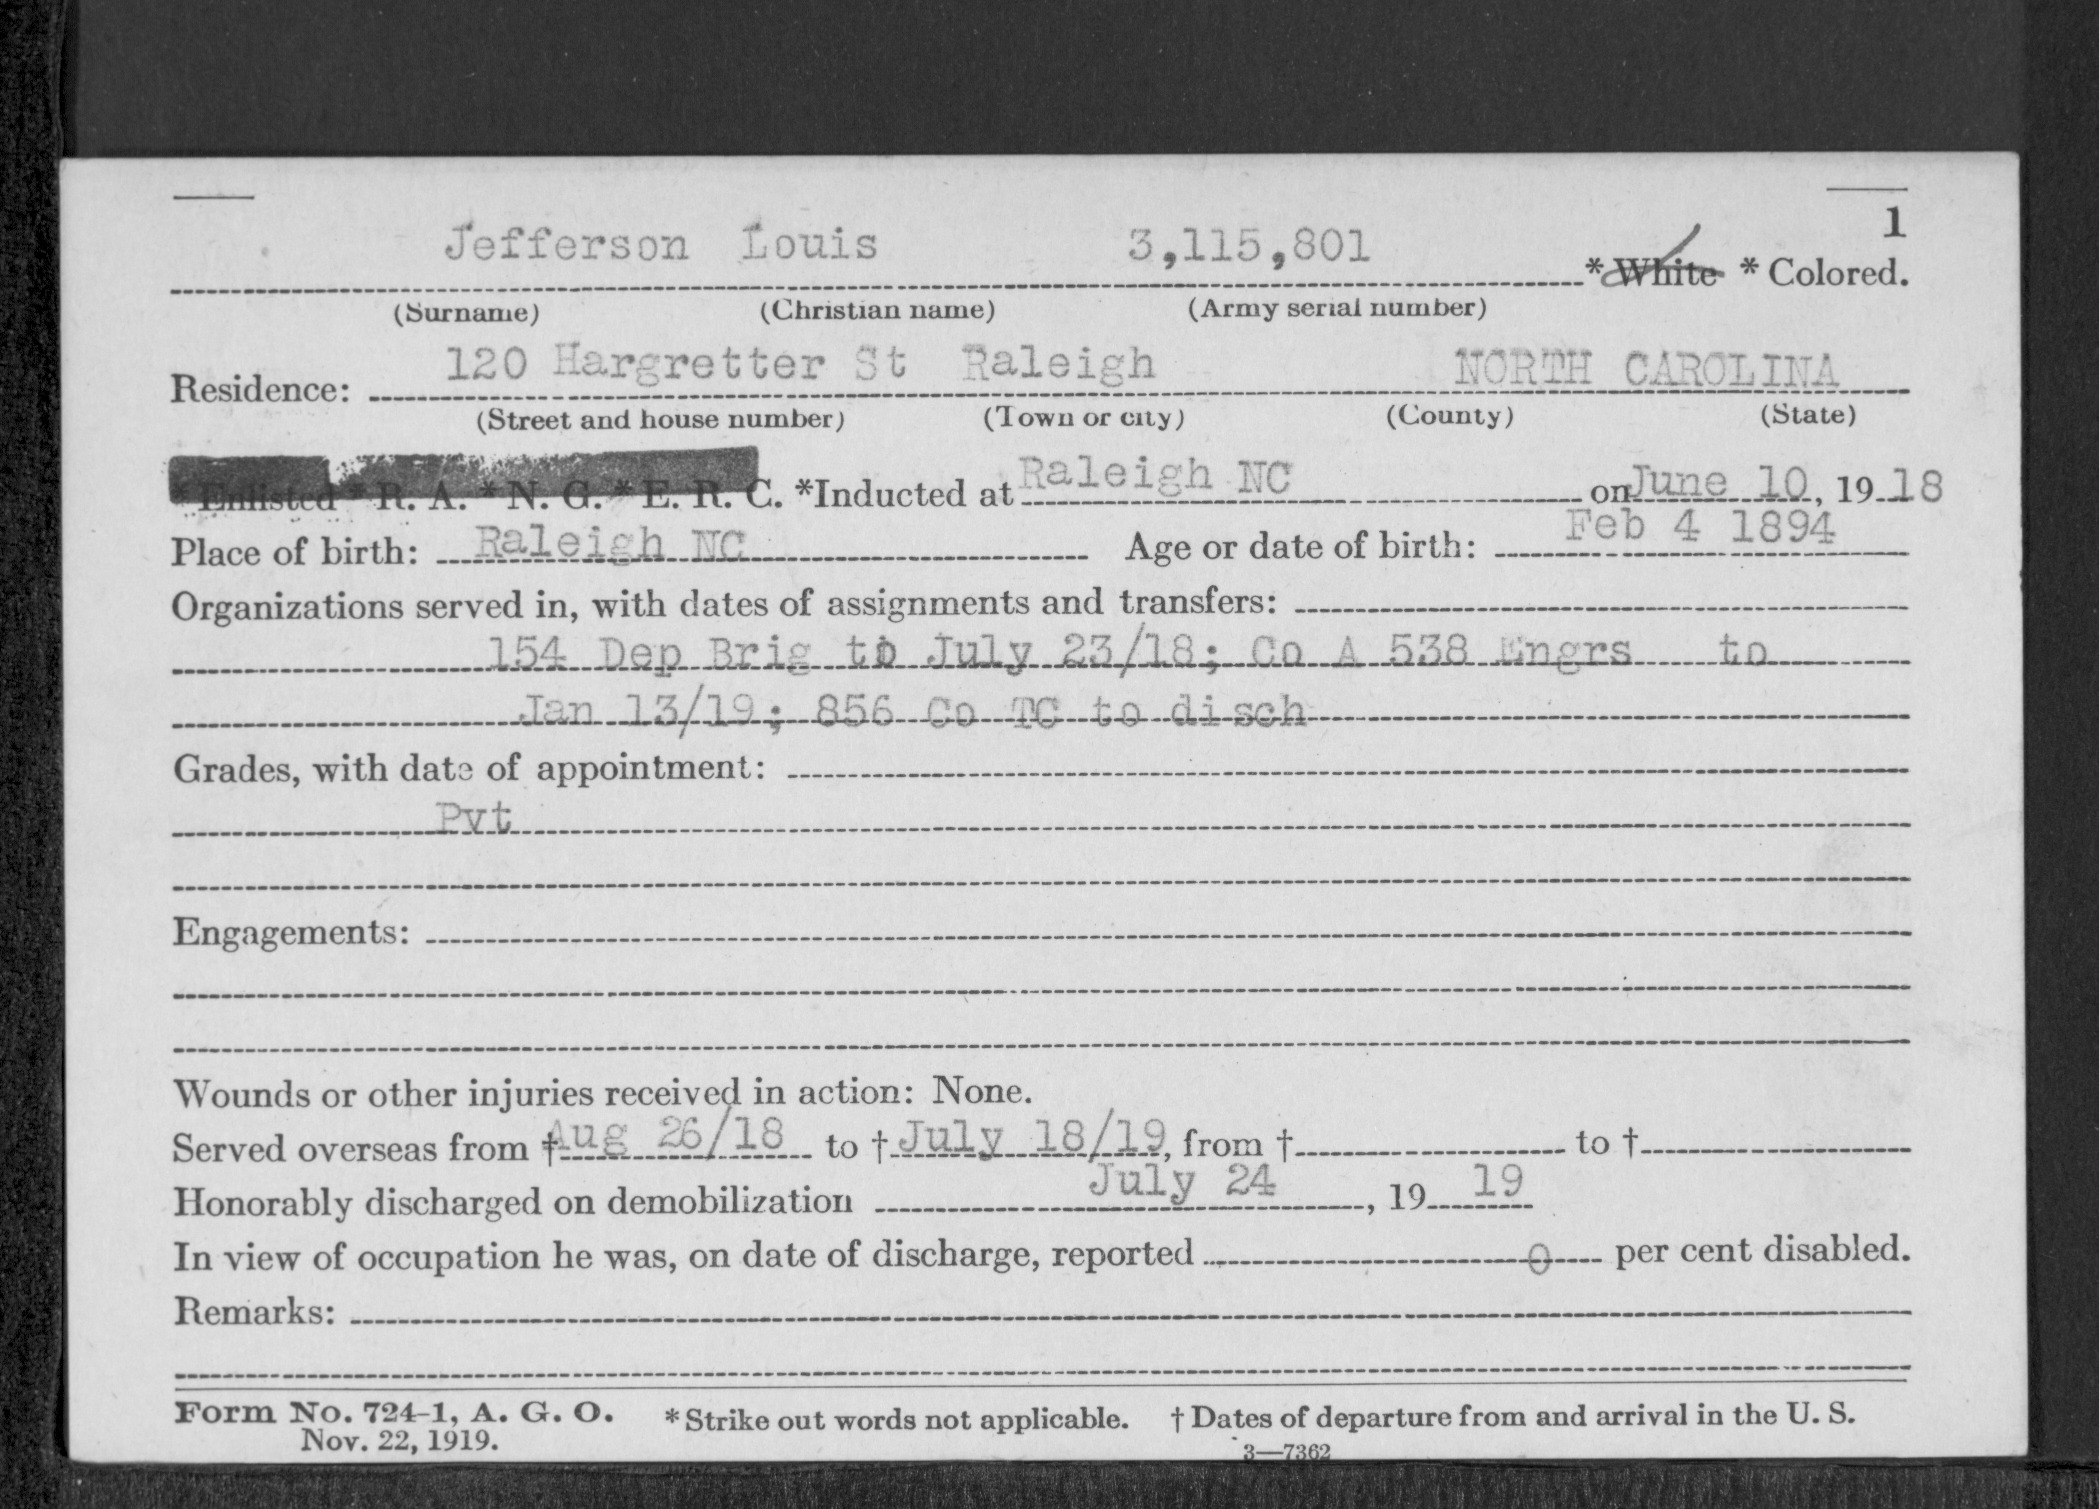 1
Jefferson Louis 3,115,801 * White * Colored.
(Surname) (Christian name) (Army serial number)
120 Hargretter St Raleigh NORTH CAROLINA
Residence:
(Street and house number) (Town or city) (County) (State)
* Enlisted * R. A. * N. G. * E. R. C. *Inducted at Raleigh NC on June 10, 1918
Place of birth: Raleigh NC Age or date of birth: Feb 4 1894
Organizations served in, with dates of assignments and transfers:
154 Dep Brig to July 23/18; Co A 538 Engrs to
Jan 13/19; 856 Co TC to disch
Grades, with date of appointment:
Pvt
Engagements:
Wounds or other injuries received in action: None.
Served overseas from † Aug 26/18 to † July 18/19, from † to †
Honorably discharged on demobilization July 24, 19 19
In view of occupation he was, on date of discharge, reported 0 per cent disabled.
Remarks:
Form No. 724-1, A. G. O. * Strike out words not applicable. † Dates of departure from and arrival in the U. S.
Nov. 22, 1919.
3—7362